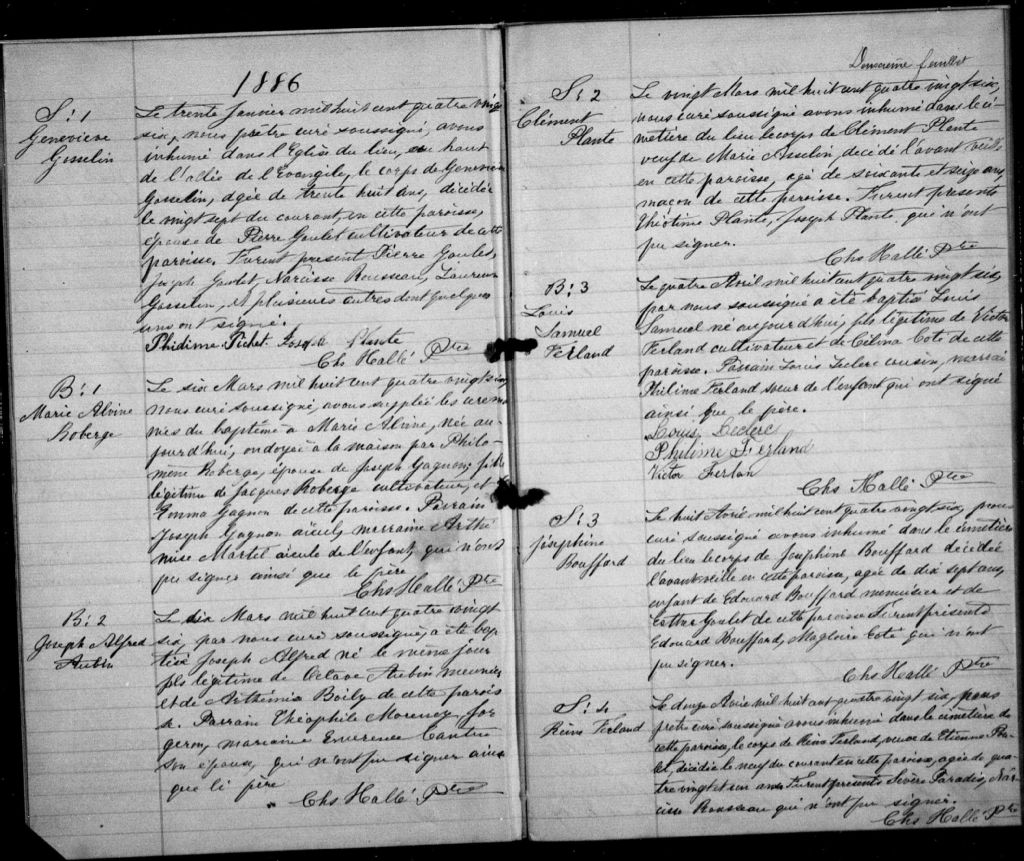 1886
S: 1
Genevieve
Gosselin
Le trente Janvier mil huit cent quatre vingt
six, nous prêtre curé soussigné, avons
inhumé dans l'Eglise du lieu, au haut
de l'allée de l'Evangile, le corps de Genevieve
Gosselin, agée de trente huit ans, décédée
le vingt sept du courant, en cette paroisse,
épouse de Pierre Goulet cultivateur de cette
paroisse. Furent présent Pierre Goulet,
Joseph Goulet, Narcisse Rousseau, Laurent
Gosselin, et plusieurs autres dont quelques
uns ont signé.
Phidime Pichet Joseph Plante
Chs Hallé Ptre
B: 1
Marie Alvine
Roberge
Le six Mars mil huit cent quatre vingt six,
nous curé soussigné, avons supplée les cérémo
nies du baptême à Marie Alvine, née au-
jourd'hui, ondoyée à la maison par Philo-
mène Roberge, épouse de Joseph Gagnon, fille
légitime de Jacques Roberge cultivateur, et
Emma Gagnon de cette paroisse. Parrain
Joseph Gagnon aïeul, marraine Arthé-
mise Martel aieule de l'enfant, qui n'ont
pu signer ainsi que le père
Chs Hallé Ptre
B: 2
Joseph Alfred
Aubin
Le six Mars mil huit cent quatre vingt
six, par nous curé soussigné, a été bap
tisé Joseph Alfred né le même jour
fils légitime de Octave Aubin meunier
et de Arthémise Boily de cette parois
se. Parrain Théophile Morency for
geron, marraine Cantin
son épouse, qui n'ont pu signer ainsi
que le père
Chs Hallé Ptre
Deuxième feuillet
S: 2
Clément
Plante
Le vingt Mars mil huit cent quatre vingt six,
nous curé soussigné avons inhumé dans le ci
metière du lieu le corps de Clément Plante
veuf de Marie Asselin, décédé l'avant veille
en cette paroisse, agé de soixante et seize ans,
maçon de cette paroisse. Furent présents
Théotime Plante, Joseph Plante, qui n'ont
pu signer.
Chs Hallé Ptre
B: 3
Louis
Samuel
Ferland
Le quatre Avril mil huit cent quatre vingt six,
par nous soussigné a été baptisé Louis
Samuel né aujourd'hui, fils légitime de Victor
Ferland cultivateur et de Célina Coté de cette
paroisse. Parrain Louis Leclerc cousin, marrai
Philime Ferland soeur de l'enfant qui ont signé
ainsi que le père.
Louis Leclerc
Philime Ferland
Victor Ferlan
Chs Hallé Ptre
S: 3
Joséphine
Bouffard
Le huit Avril mil huit cent quatre vingt six, nous
curé soussigné avons inhumé dans le cimetière
du lieu le corps de Joséphine Bouffard décédée
l'avant veille en cette paroisse, agée de dix sept ans,
enfant de Edouard Bouffard menuisier et de
Esther Goulet de cette paroisse Furent présents
Edouard Bouffard, Magloire Coté qui n'ont
pu signer.
Chs Hallé Ptre
S: 4
Reine Ferland
Le douze Avril mil huit cent quatre vingt six, nous
prêtre curé soussigné avons inhumé dans le cimetière de
cette paroisse, le corps de Reine Ferland, veuve de Etienne
décédée le neuf du courant en cette paroisse, agée de qua
tre vingt et un ans. Furent présents Sévère Paradis, Nar-
cisse Rousseau qui n'ont pu signer.
Chs Hallé Ptre